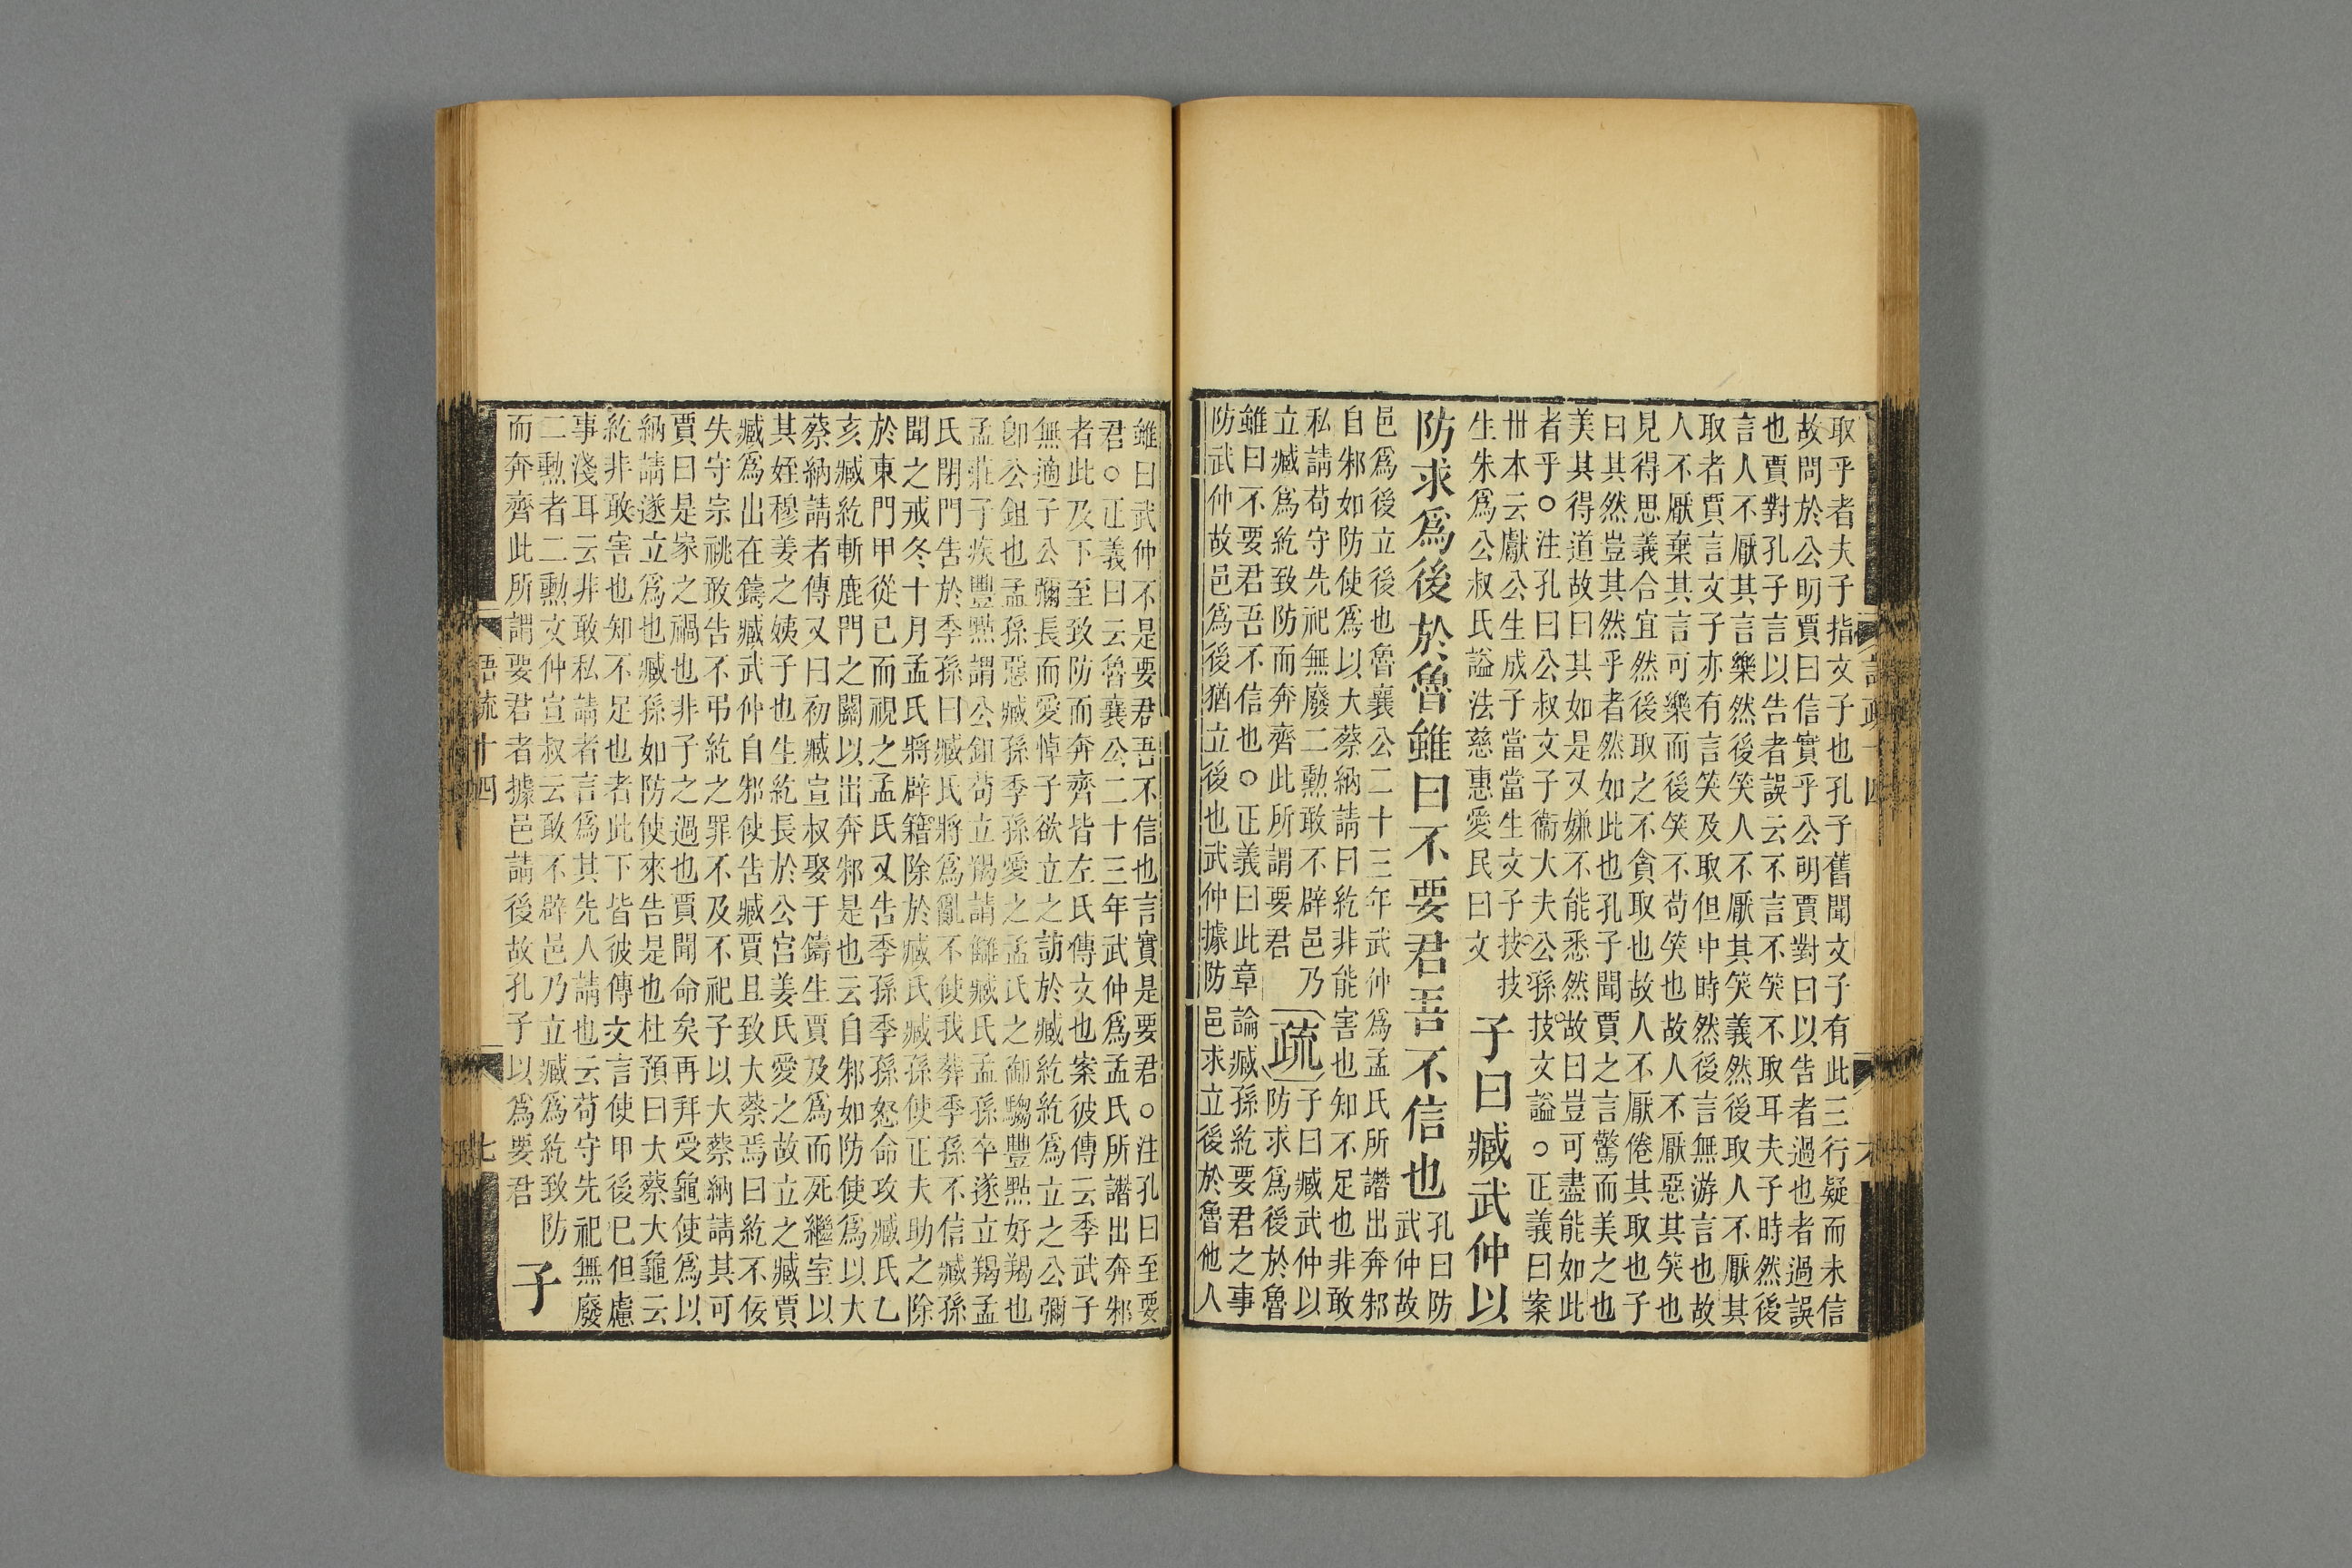 取乎者夫子指文子也孔子舊聞文子有此三行疑而未信
故問於公明賈曰信實乎公明賈對曰以告者過也者過誤
也賈對孔子言以告者誤云不言不笑不取耳夫子時然後
言人不厭其言樂然後笑人不厭其笑義然後取人不厭其
取者賈言文子亦有言笑及取但中時然後言無游言也故
人不厭棄其言可樂而後笑不苟笑也故人不厭惡其笑也
見得思義合宜然後取之不貪取也故人不厭倦其取也子
曰其然豈其然乎者然如此也孔子聞賈之言驚而美之也
美其得道故曰其如是又嫌不能悉然故曰豈可盡能如此
者乎○注孔曰公叔文子衞大夫公孫技文謚○正義曰案
丗本云獻公生成子當當生文子技技
生朱爲公叔氏謚法慈惠愛民曰文
子曰臧武仲以
防求爲後於魯雖曰不要君吾不信也
孔曰防
武仲故
邑爲後立後也魯襄公二十三年武仲爲孟氏所譖出奔邾
自邾如防使爲以大蔡納請曰紇非能害也知不足也非敢
私請苟守先祀無廢二勳敢不辟邑乃
立臧爲紇致防而奔齊此所謂要君
疏
子曰臧武仲以
防求爲後於魯
雖曰不要君吾不信也○正義曰此章論臧孫紇要君之事
防武仲故邑爲後猶立後也武仲據防邑求立後於魯他人
雖曰武仲不是要君吾不信也言實是要君○注孔曰至要
君○正義曰云魯襄公二十三年武仲爲孟氏所譖出奔邾
者此及下至致防而奔齊皆左氏傳文也案彼傳云季武子
無適子公彌長而愛悼子欲立之訪於臧紇紇爲立之公彌
卽公鉏也孟孫惡臧孫季孫愛之孟氏之御騶豐點好羯也
孟莊子疾豐點謂公鉏苟立羯請讎臧氏孟孫卒遂立羯孟
氏閉門告於季孫曰臧氏將爲亂不使我葬季孫不信臧孫
聞之戒冬十月孟氏將辟籍除於臧氏臧孫使正夫助之除
於東門甲從已而視之孟氏又告季孫季孫怒命攻臧氏乙
亥臧紇斬鹿門之關以出奔邾是也云自邾如防使爲以大
蔡納請者傳又曰初臧宣叔娶于鑄生賈及爲而死繼室以
其姪穆姜之姨子也生紇長於公宮姜氏愛之故立之臧賈
臧爲出在鑄臧武仲自邾使告臧賈且致大蔡焉曰紇不佞
失守宗祧敢告不弔紇之罪不及不祀子以大蔡納請其可
賈曰是家之禍也非子之過也賈聞命矣再拜受龜使爲以
納請遂立爲也臧孫如防使來告是也杜預曰大蔡大龜云
紇非敢害也知不足也者此下皆彼傳文言使甲後已但慮
事淺耳云非敢私請者言爲其先人請也云苟守先祀無廢
二勳者二勳文仲宣叔云敢不辟邑乃立臧爲紇致防
而奔齊此所謂要君者據邑請後故孔子以爲要君
子
語疏十四
七